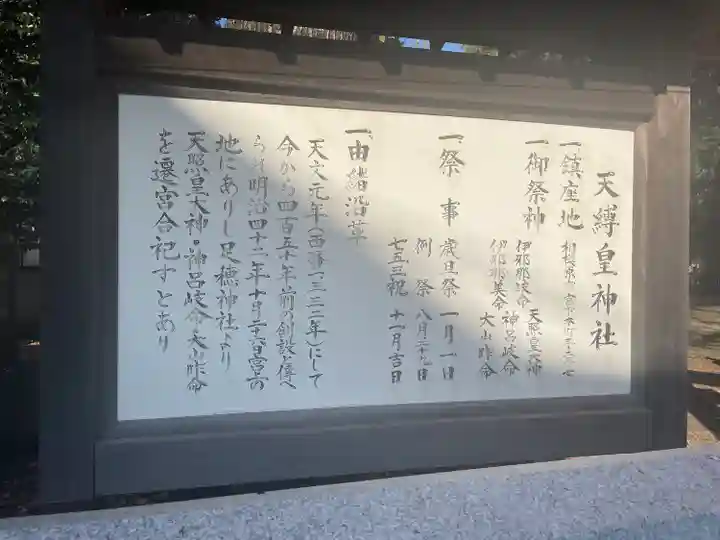 天縛皇神社
一、鎮座地 相模原市宮下本町
一、御祭神 伊邪那岐命 天照皇大神
神呂岐命
伊邪那美命 大山咋命
一、祭事 歳旦祭 一月一日
例祭 八月二十九日
七五三祝 十一月吉日
一、由緒沿革
天文元年(西暦一三三二年)にして
今から四百五十年前の創設と傳へ
られ明治四十二年十月二十六日宮下の
地にありし足穂神社より
天照皇大神・神呂岐命・大山咋命
を遷宮合祀すとあり